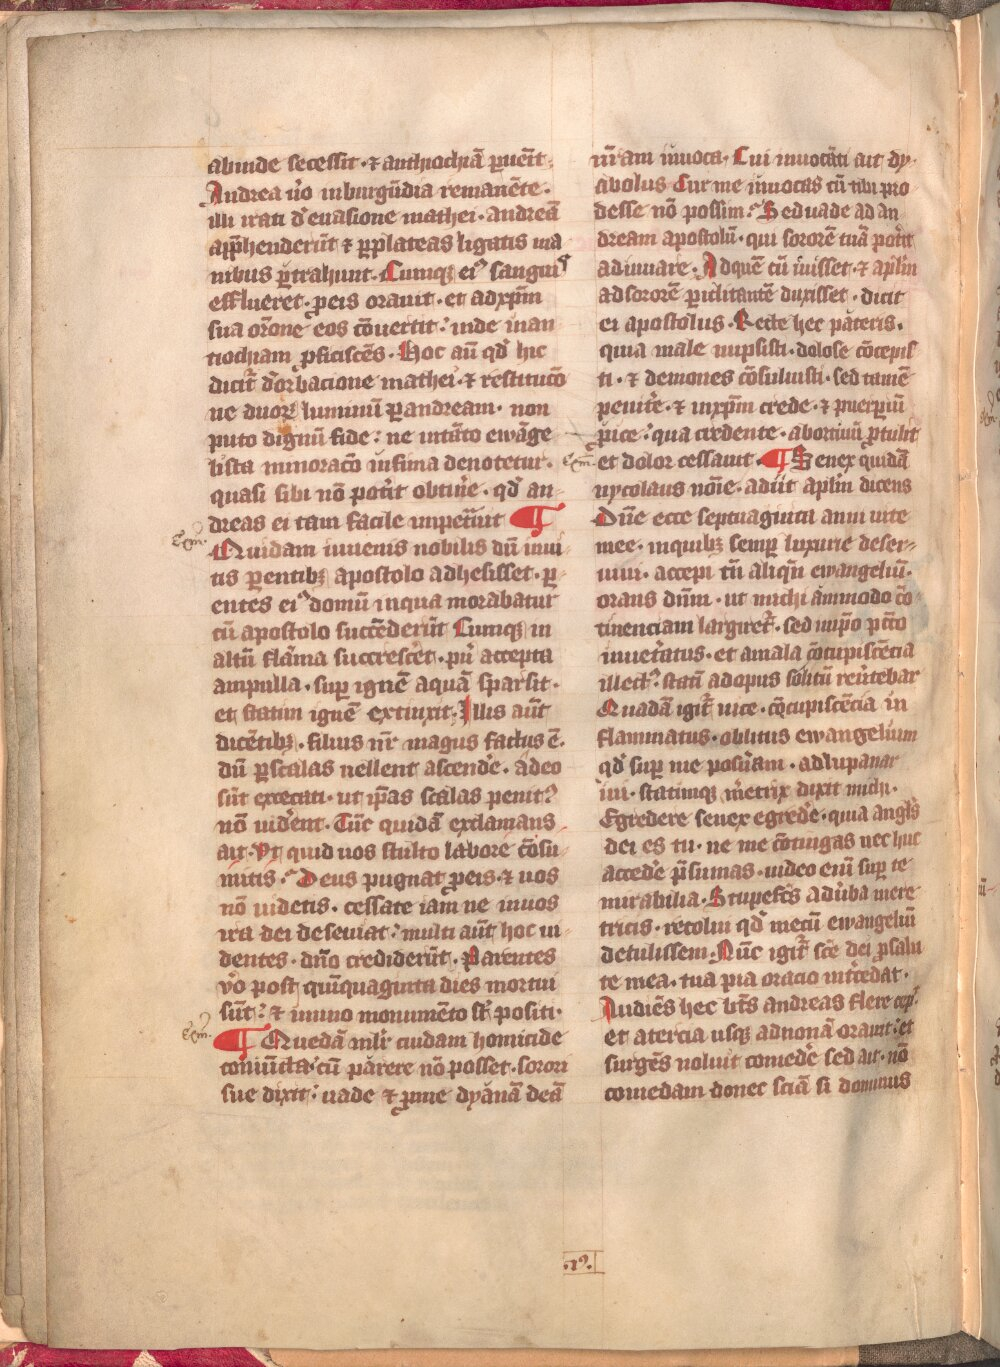 abinde secessit · ⁊ anthiochiā ꝑuēit ·
Andrea ůo in burgūdia remanēte ·
illi irati d̓ euasione mathei · andreā
app̄henderūt ⁊ ꝑ plateas ligatis ma
nibus ꝑtrahunt · Cumqꝫ eiꝰ sanguis
efflueret · ꝓ eis orauit · et ad xp̄m
sua or̄one eos cōuertit · inde in an
tiochiam ꝓficiscēs · Hoc aū qd̓ hic
dicit̄ d̓ orbacione mathei · ⁊ restitucō
ne duoꝝ luminū ꝑ andream · non
puto dignū fide : ne in tāto ewāge
lista minoracō infima denotetur ·
quasi sibi nō potĭt obtin̓e · qd̓ an-
dreas ei tam facile impet̄uit ¶
Exm̄
Quidam iuuenis nobilis dū inui
tis ꝑentibꝫ apostolo adhesisset · ꝑ-
entes eiꝰ domū in qua morabatur
cū apostolo succēderūt Cumqꝫ in
altū flāma succresceret · pu̓ accepta
ampulla · suꝑ ignē aquā sparsit ·
et statim ignē extinxit · Illis aūt
dicētibꝫ · filius nr̄ magus factus ē ·
dū ꝑ scalas uellent ascend̓e · adeo
sūt excecati · ut ip̄as scalas penitꝰ
nō uid̓ent · Tūc quidā exclamans
ait · Vt quid uos stulto labore cōsu-
mitis · Deus pugnat ꝓ eis · ⁊ uos
nō uidetis · cessate iam ne in uos
ira dei deseuiat : multi aūt hoc ui-
dentes · dn̄o crediderūt · Parentes
v̓o post quīquaginta dies mortui
sūt : ⁊ in uno monumēto st̄ positi ·
Exm̄
¶ Quedā mlr̄ cuidam homicide
coniūcta · cū parere nō posset · sorori
sue dixit : uade ⁊ ꝓ me dyanā deā
nr̄am inuoca · Cui inuocāti ait dy-
abolus Cur me inuocas cū tibi pro
desse nō possim · Sed uade ad an
dream apostolū · qui sororē tuā potĭt
adiuuare · Ad quē cū iuisset · ⁊ apl̄m
ad sororē ꝑiclitantē duxisset · dicit
ei apostolus · Recte hec pateris ·
quia male nupsisti · dolose cōcepis
ti · ⁊ demones cōsuluisti · sed tamē
penite · ⁊ in xp̄m crede · ⁊ puerꝑiū
ꝓice : qua credente · abortiuū ꝓtulit
Exm̄
et dolor cessauit · ¶ Senex quidā
nycolaus noīe · adiit apl̄m dicens
Dn̄e ecce septuaginta anni uite
mee · in quibꝫ semꝑ luxurie deser-
uiui · accepi tn̄ aliqn̄ ewangeliū ·
orans dn̄m · ut michi āmodo cō
tinenciam largiret̄ · sed in ip̄o pctō
inuet̓atus · et a mala cōcupiscēcia
illectꝰ · statī ad opus solitū reu̓tebar
Quadā igit̄ uice · cōcupiscēcia in
flammatus · oblitus ewangelium
qd̓ suꝑ me posu̓am · ad lupanar
iui · statimqꝫ m̓etrix dixit michi ·
Egredere senex egred̓e · quia angl̓s
dei es tu · ne me cōtingas nec huc
acced̓e p̄sumas · uideo enī suꝑ te
mirabilia · Stupefcs̄ ad u̓ba mere
tricis · recolui qd̓ mecū ewangeliū
detulissem · Nūc igit̄ scē dei ꝓ salu
te mea · tua pia oracio int̓cedat ·
Audiēs hec bt̄s andreas flere cep̓t
et a tercia usqꝫ ad nonā orauit · et
surgēs noluit comed̓e sed ait · nō
comedam donec sciā si dominus
·12·